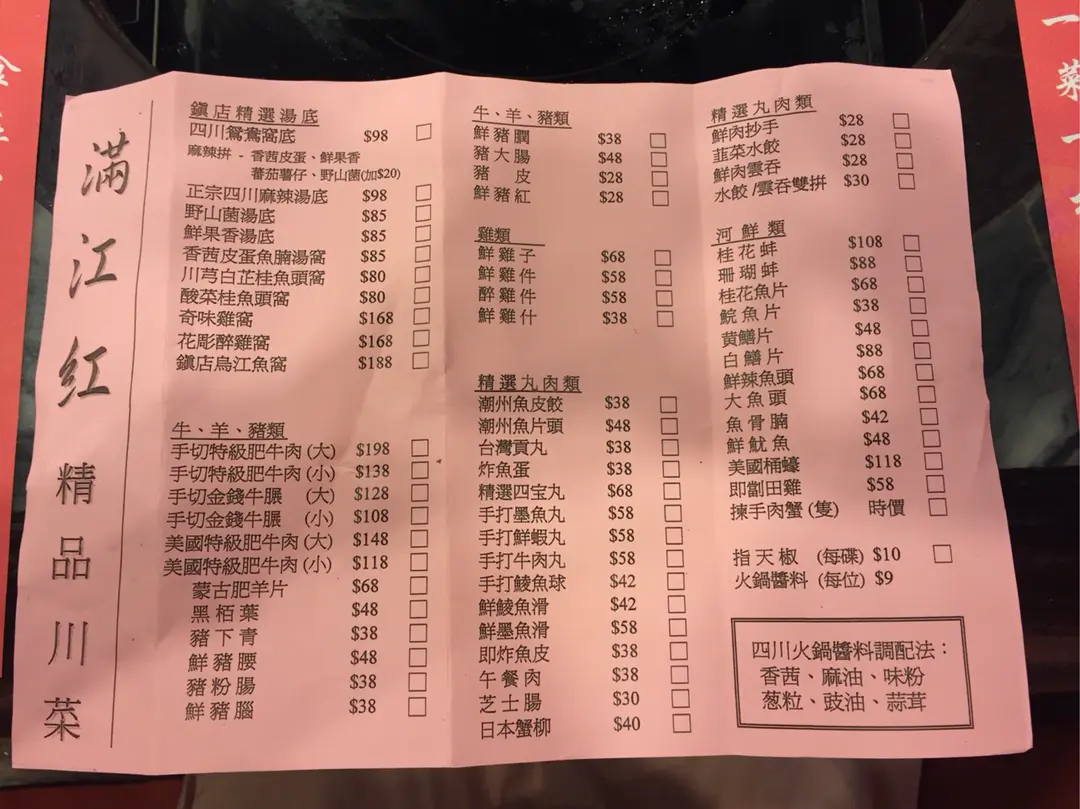 滿江紅
精品川菜
鎮店精選湯底
四川鴛鴦窩底 $98 □
麻辣拼 - 香茜皮蛋、鮮果香
蕃茄薯仔、野山菌(加$20)
正宗四川麻辣湯底 $98 □
野山菌湯底 $85 □
鮮果香湯底 $85 □
香茜皮蛋魚腩湯窩 $85 □
川芎白芷桂魚頭窩 $80 □
酸菜桂魚頭窩 $80 □
奇味雞窩 $168 □
花彫醉雞窩 $168 □
鎮店烏江魚窩 $188 □
牛、羊、豬類
手切特級肥牛肉 (大) $198 □
手切特級肥牛肉 (小) $138 □
手切金錢牛𦟌 (大) $128 □
手切金錢牛𦟌 (小) $108 □
美國特級肥牛肉 (大) $148 □
美國特級肥牛肉 (小) $118 □
蒙古肥羊片 $68 □
黑栢葉 $48 □
豬下青 $38 □
鮮豬腰 $48 □
豬粉腸 $38 □
鮮豬腦 $38 □
牛、羊、豬類
鮮豬膶 $38 □
豬大腸 $48 □
豬皮 $28 □
鮮豬紅 $28 □
雞類
鮮雞子 $68 □
鮮雞件 $58 □
醉雞件 $58 □
鮮雞什 $38 □
精選丸肉類
潮州魚皮餃 $38 □
潮州魚片頭 $48 □
台灣貢丸 $38 □
炸魚蛋 $38 □
精選四宝丸 $68 □
手打墨魚丸 $58 □
手打鮮蝦丸 $58 □
手打牛肉丸 $58 □
手打鯪魚球 $42 □
鮮鯪魚滑 $42 □
鮮墨魚滑 $58 □
即炸魚皮 $38 □
午餐肉 $38 □
芝士腸 $30 □
日本蟹柳 $40 □
精選丸肉類
鮮肉抄手 $28 □
韮菜水餃 $28 □
鮮肉雲吞 $28 □
水餃/雲吞雙拼 $30 □
河鮮類
桂花蚌 $108 □
珊瑚蚌 $88 □
桂花魚片 $68 □
鯇魚片 $38 □
黄鱔片 $48 □
白鱔片 $88 □
鮮辣魚頭 $68 □
大魚頭 $68 □
魚骨腩 $42 □
鮮魷魚 $48 □
美國桶蠔 $118 □
即劏田雞 $58 □
揀手肉蟹 (隻) 時價 □
指天椒 (每碟) $10 □
火鍋醬料 (每位) $9
四川火鍋醬料調配法：
香茜、麻油、味粉
葱粒、豉油、蒜茸
一菜一